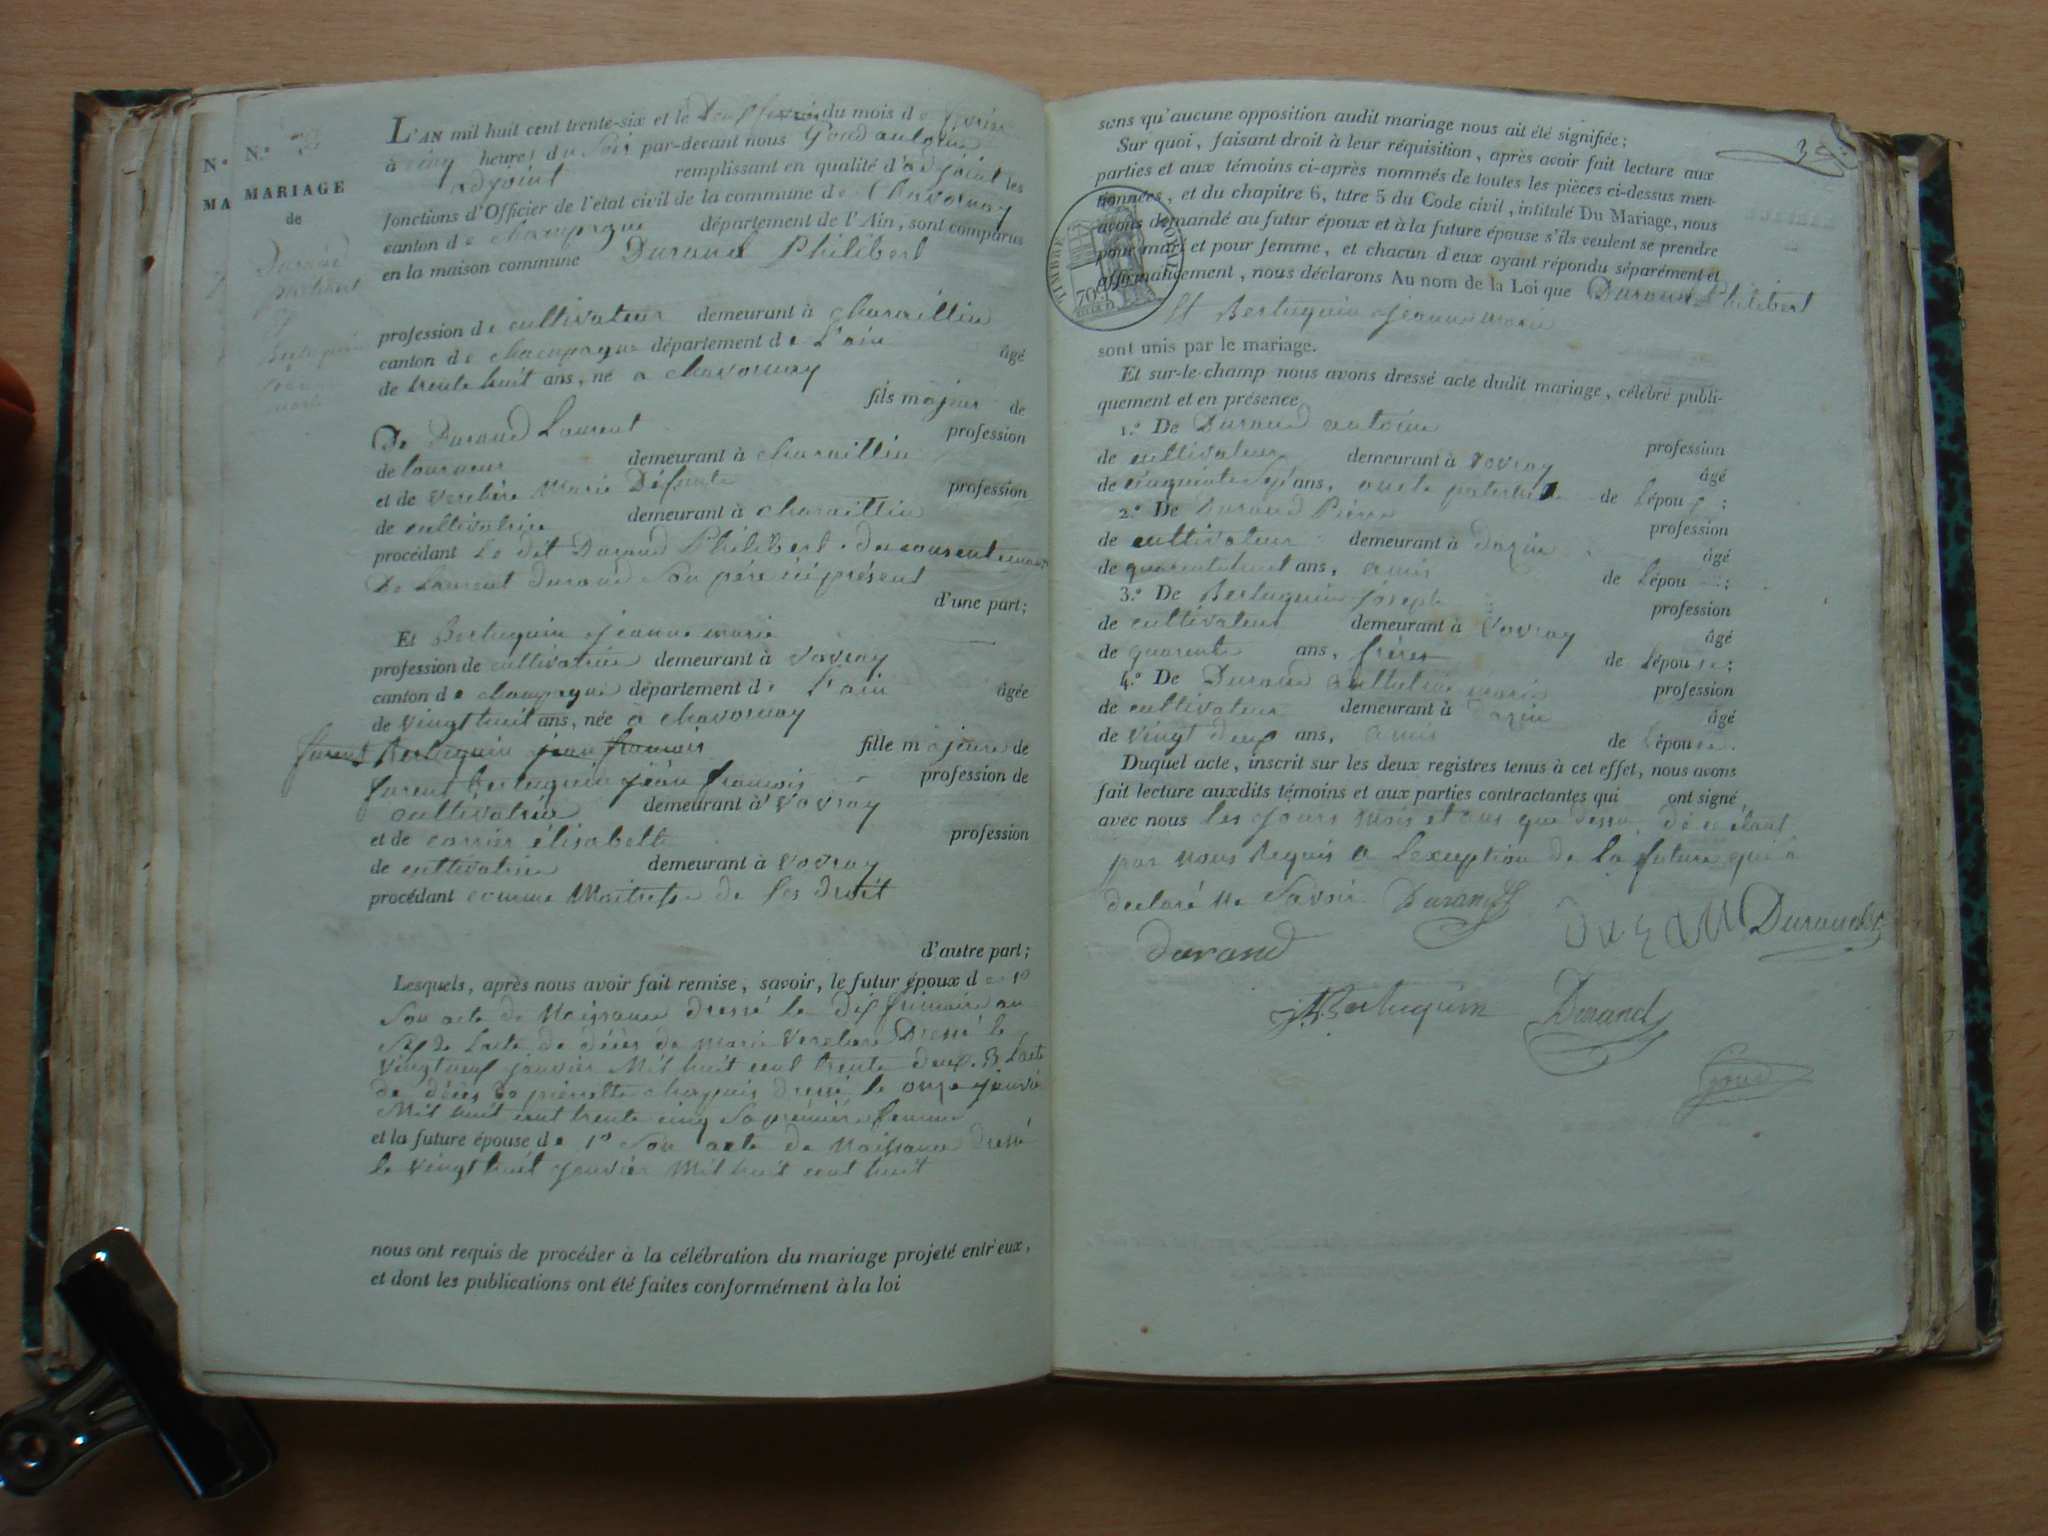 N.º
N.º
MA
MARIAGE
de
Durand
philibert
Bertuquin
jeanne
marie
L'AN mil huit cent trente-six et le du mois de février
à cinq heures du soir par-devant nous
adjoint remplissant en qualité d'adjoint les
fonctions d'Officier de l'état civil de la commune de Chavornay
canton de champagne département de l'Ain, sont comparus
en la maison commune Durand Philibert
profession de cultivateur demeurant à charaillin
canton de champagne département de L'ain âgé
de trente huit ans, né à chavornay
fils majeur de
De Durand Laurent profession
de demeurant à charaillin
et de verchère Marie Défunte profession
de cultivatrice demeurant à charaillin
procédant Le dit Durand Philibert du consentement
De Laurent durand Son père ici présent
d'une part;
Et Bertuquin jeanne marie
profession de cultivatrice demeurant à vovray
canton de champagne département de L'ain âgée
de vingt huit ans, née à chavornay
furent Bertuquin jean francois fille majeure de
furent Bertuquin jean francois profession de
cultivatrice demeurant à vovray
et de carrier élisabette profession
de cultivatrice demeurant à vovray
procédant comme Maitresse de Ses Droit
d'autre part;
Lesquels, après nous avoir fait remise, savoir, le futur époux de 1º
Son acte de Naissance dressé le dix frimaire an
Six 2 Lacte de décès de Marie Verchere Dressé le
Vingt neuf janvier Mil huit cent trente deux. 3 Lacte
de décès de pierrette chapuis dressé le onze janvier
Mil huit cent trente cinq Sa première femme
et la future épouse de 1º Son acte de Naissance dressé
le Vingt huit janvier Mil huit cent huit
nous ont requis de procéder à la célébration du mariage projeté entr'eux,
et dont les publications ont été faites conformément à la loi
sans qu'aucune opposition audit mariage nous ait été signifiée;
Sur quoi, faisant droit à leur réquisition, après avoir fait lecture aux
parties et aux témoins ci-après nommés de toutes les pièces ci-dessus men-
tionnées, et du chapitre 6, titre 5 du Code civil, intitulé Du Mariage, nous
avons demandé au futur époux et à la future épouse s'ils veulent se prendre
pour mari et pour femme, et chacun d'eux ayant répondu séparément et
affirmativement, nous déclarons Au nom de la Loi que Durand Philibert
TIMBRE ROYAL
70c
Et Bertuquin jeanne marie
sont unis par le mariage.
Et sur-le-champ nous avons dressé acte dudit mariage, célébré publi-
quement et en présence
1.º De Durand antoine profession
de cultivateur demeurant à vovray âgé
de cinquante Sept ans, oncle paternel de Lépoux;
2.º De Durand Pierre profession
de cultivateur demeurant à âgé
de quarante huit ans, amis de Lépou;
3.º De Bertuquin joseph profession
de cultivateur demeurant à vovray âgé
de quarente ans, frères de Lépouse;
4.º De Durand marie profession
de cultivateur demeurant à âgé
de vingt deux ans, amis de Lépouse.
Duquel acte, inscrit sur les deux registres tenus à cet effet, nous avons
fait lecture auxdits témoins et aux parties contractantes qui ont signé
avec nous les jours mois et ans que dessu. de ce étant
par nous Requis a Lexeption de la future qui a
declaré Ne Savoir Durand
durand Durand Durand
Bertuquin Durand